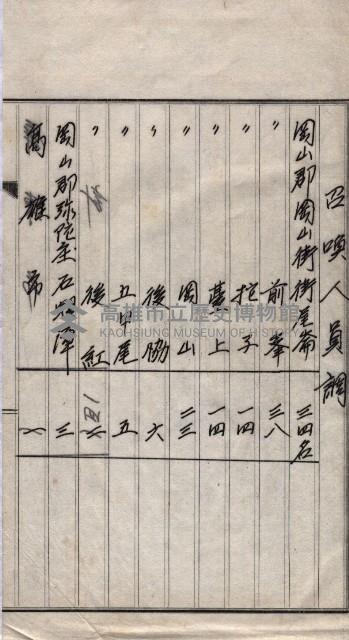 召喚人員調
岡山郡岡山街街尾崙 三四名
〃 前峯 三八
〃 挖子 一四
〃 臺上 一四
〃 岡山 二三
〃 後協 六
〃 五甲尾 五
〃 後紅 六 四一
岡山郡弥陀庄石 潭 三
高雄市 一
高雄市立歷史博物館
KAOHSIUNG MUSEUM OF HISTORY